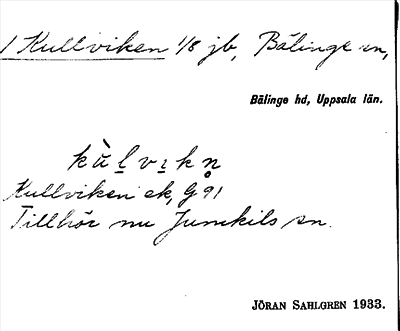 1 Kullviken 1/8 jb, Bälinge sn,
Bälinge hd, Uppsala län.
kùḷvı̣kn̥
Kullviken ek, G 91
Tillhör nu Jumkils sn.
JÖRAN SAHLGREN 1933.